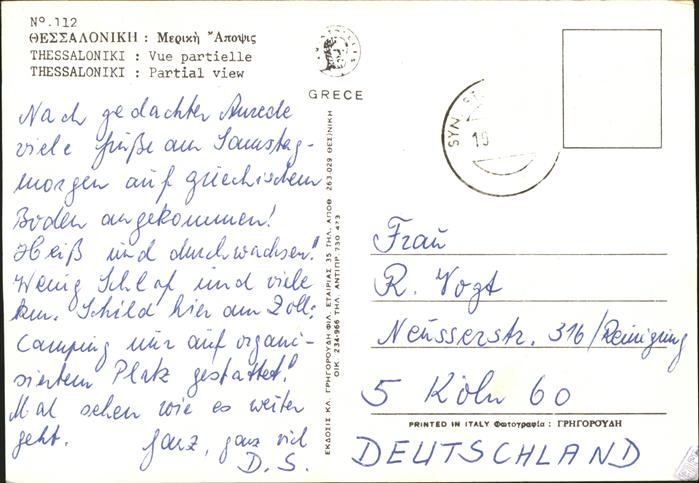 Nº.112
ΘΕΣΣΑΛΟΝΙΚΗ : Μερική Ἄποψις
THESSALONIKI : Vue partielle
THESSALONIKI : Partial view
GRECE
Nach gedachter Anrede
viele Grüße am Samstag-
morgen auf griechischem
Boden angekommen!
Heiß und durchwachsen!
Wenig Schlaf und viele
km. Schild hier am Zoll:
Camping nur auf organi-
siertem Platz gestattet!
Mal sehen wie es weiter
geht. Ganz, ganz viel
D. S.
ΕΚΔΟΣΙΣ ΚΛ. ΓΡΗΓΟΡΟΥΔΗ ΦΙΛ. ΕΤΑΙΡΙΑΣ 35 ΤΗΛ. ΑΠΟΘ 263.029 ΘΕΣ)ΝΙΚΗ
ΟΙΚ. 234-966 ΤΗΛ. ΑΝΤΙΠΡ. 730 473
19
Frau
R. Vogt
Neusserstr. 316/Reinigung
5 Köln 60
PRINTED IN ITALY Φωτογραφία : ΓΡΗΓΟΡΟΥΔΗ
DEUTSCHLAND